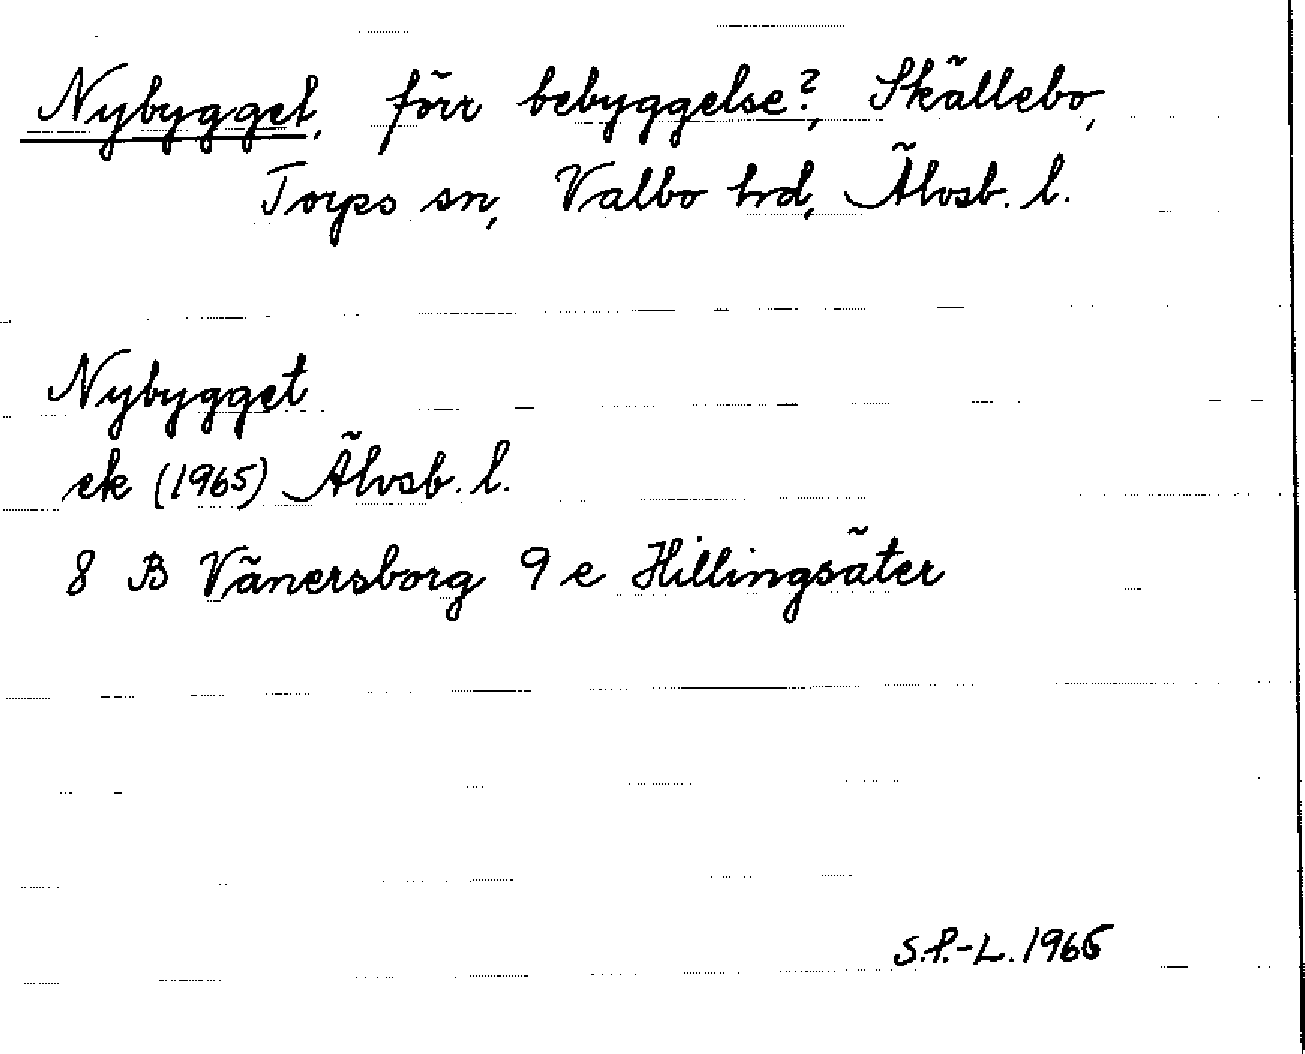 Nybygget, förr bebyggelse?, Skällebo,
Torps sn, Valbo hd, Älvsb. l.
Nybygget
ek (1965) Älvsb. l.
8 B Vänersborg 9 e Hillingsäter
S.P.-L. 1965